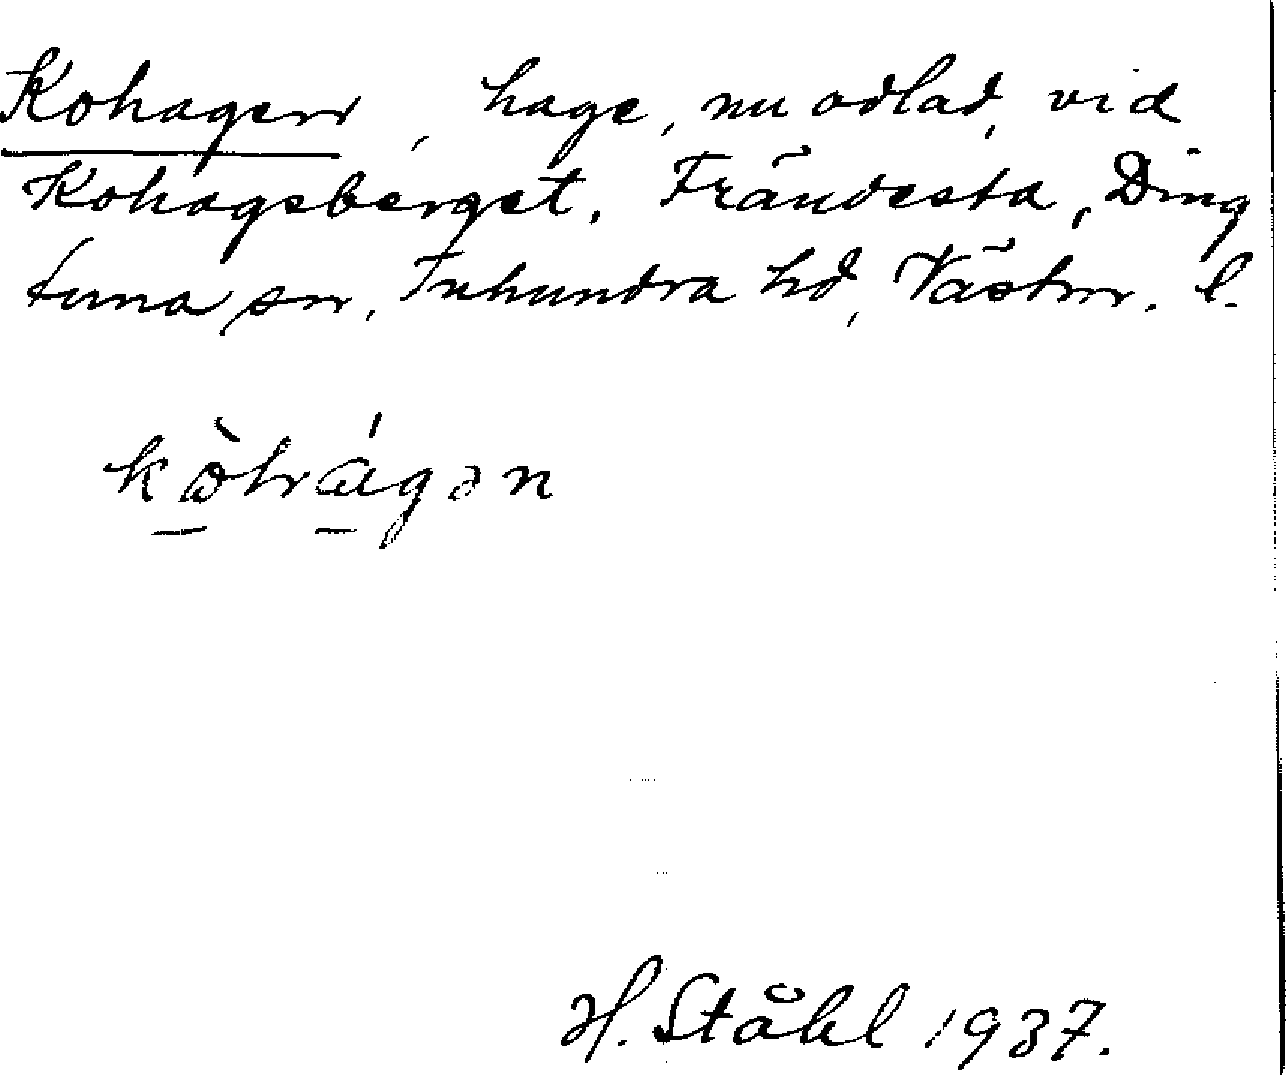 Kohagen, hage, nu odlad, vid
Kohagsberget. Frändesta, Ding
tuna sn, Tuhundra hd, Västm. l.
kòhágən
H. Ståhl 1937.